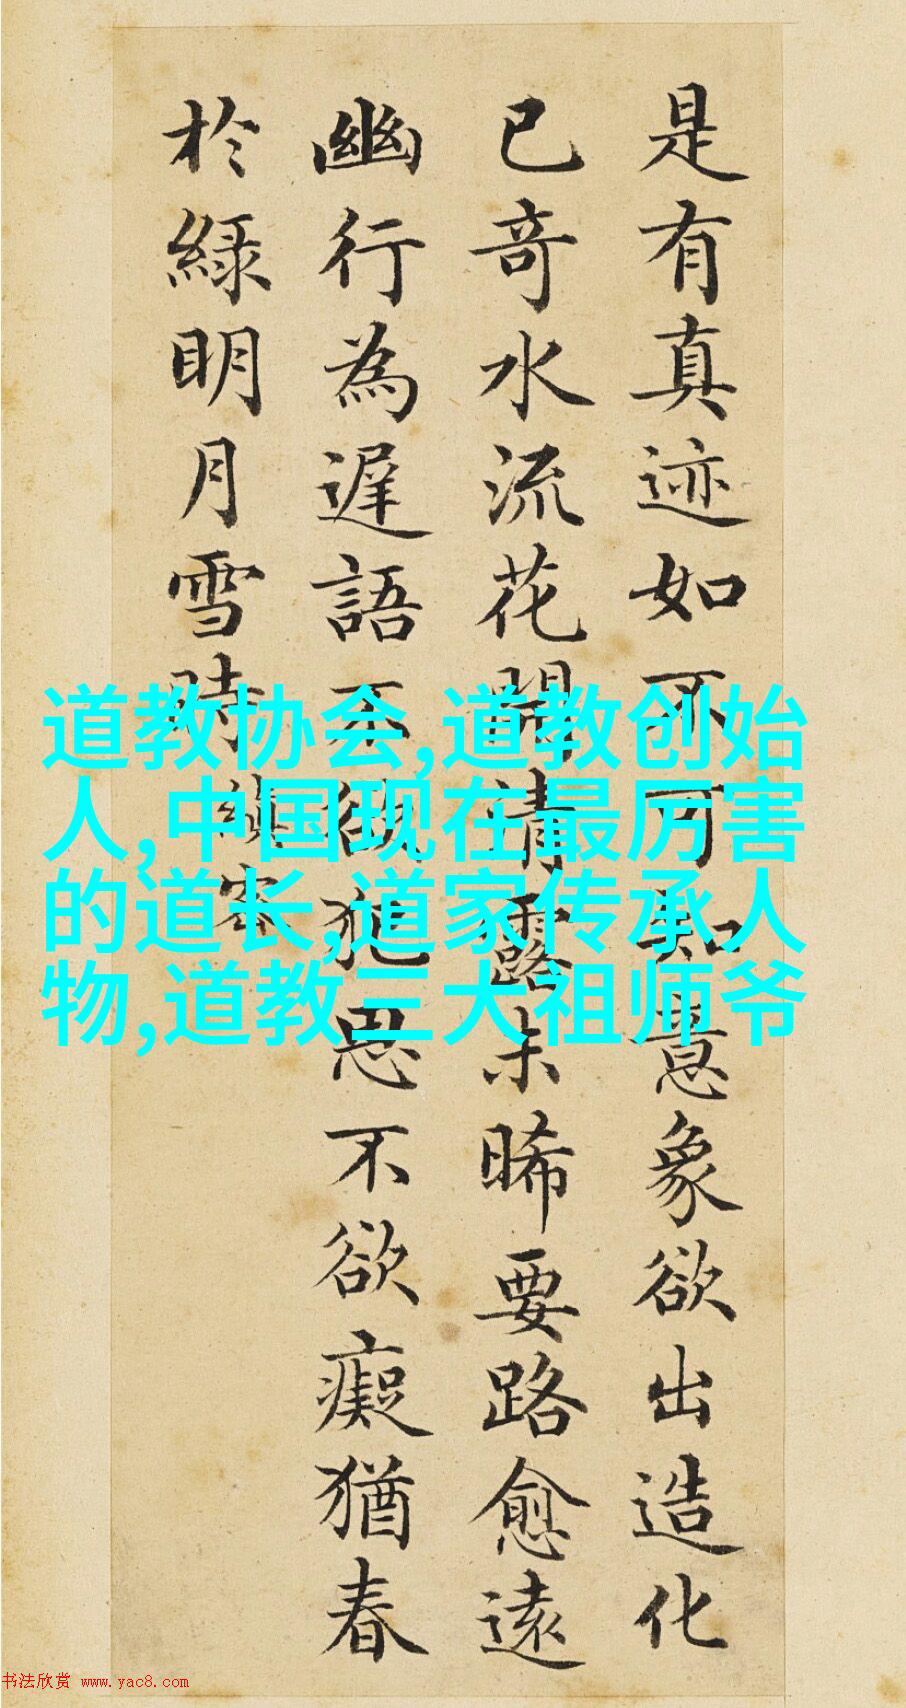 是有真迹如不可知意象欲出造化
已竒水流花開清露未晞要路愈遠
幽行為遲語不欲犯思不欲癡猶春
於綠明月雪時
縝密
道教协会,道教创始
人,中国现在最厉害
的道长,道家传承人
物,道教三大祖师爷
书法欣赏 www.yac8.com